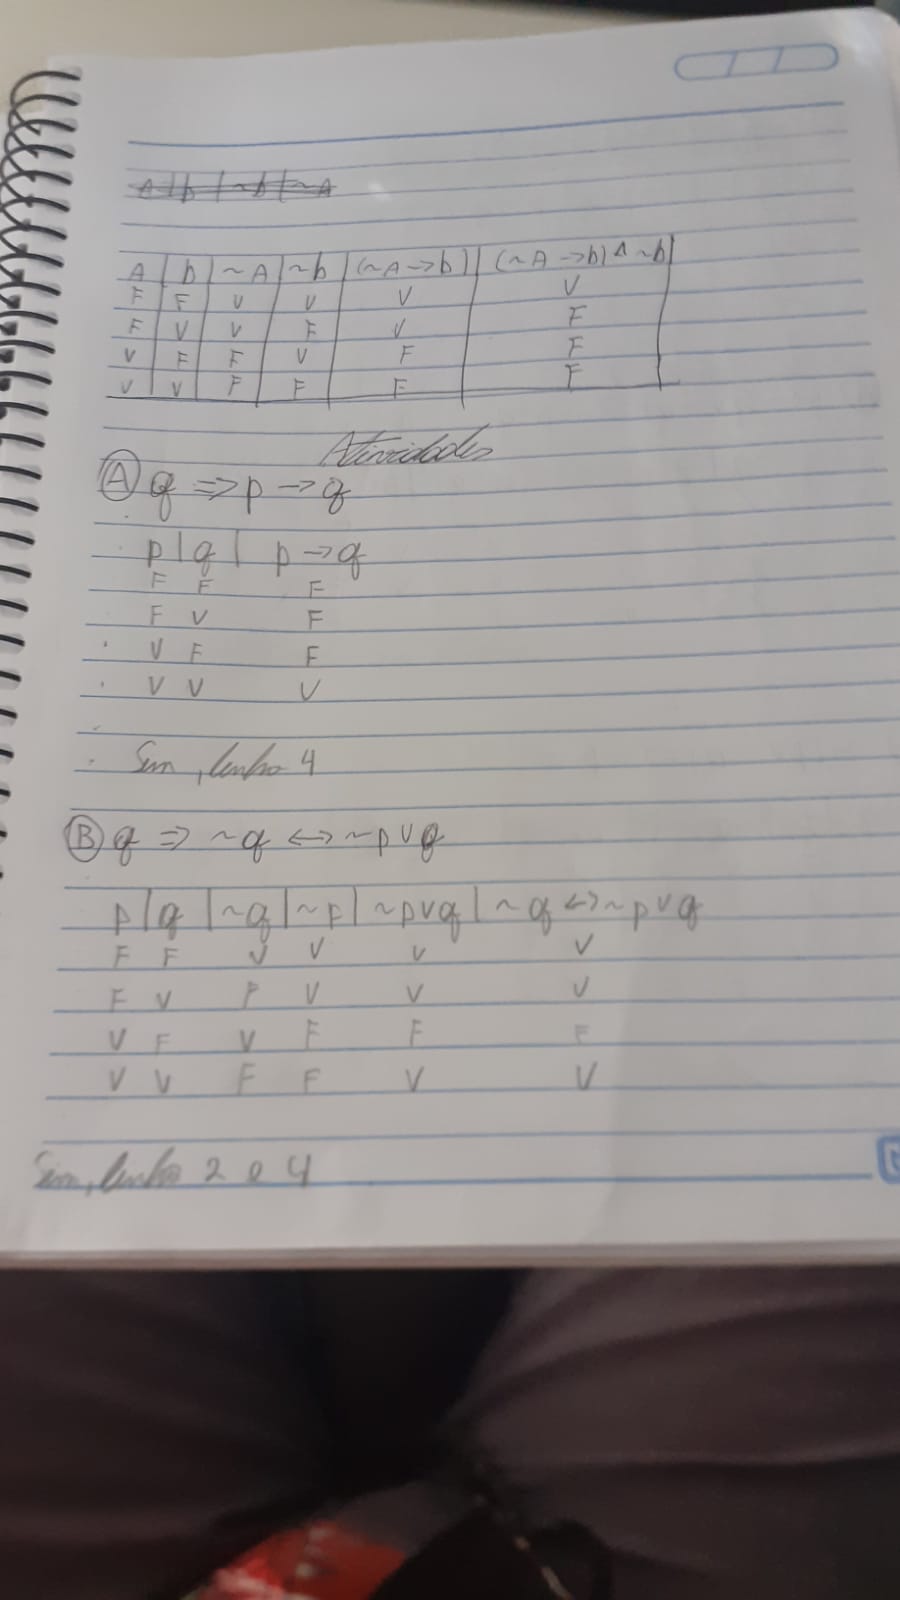 A | b | ~b | ~A
A | b | ~A | ~b | (~A->b) | (~A->b)^~b
F | F | V | V | V | V
F | V | V | F | V | F
V | F | F | V | F | F
V | V | F | F | F | F
Atividades
A q => p -> q
p | q | p -> q
F F F
F V F
V F F
V V V
Sim, linha 4
B q => ~q <-> ~p v q
p | q | ~q | ~p | ~p v q | ~q <-> ~p v q
F F V V V V
F V F V V V
V F V F F F
V V F F V V
Sim, linha 2 e 4